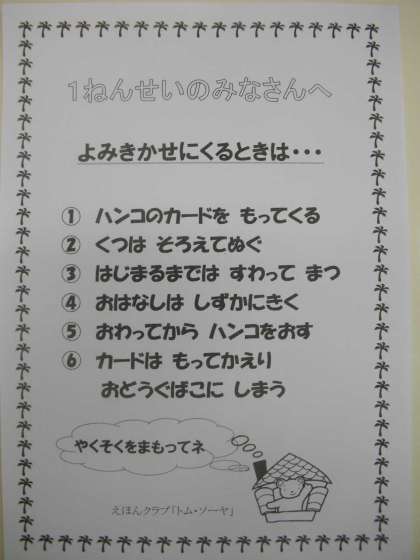 1ねんせいのみなさんへ
よみきかせにくるときは・・・
① ハンコのカードを もってくる
② くつは そろえてぬぐ
③ はじまるまでは すわって まつ
④ おはなしは しずかにきく
⑤ おわってから ハンコをおす
⑥ カードは もってかえり
おどうぐばこに しまう
やくそくをまもってネ
えほんクラブ「トム・ソーヤ」